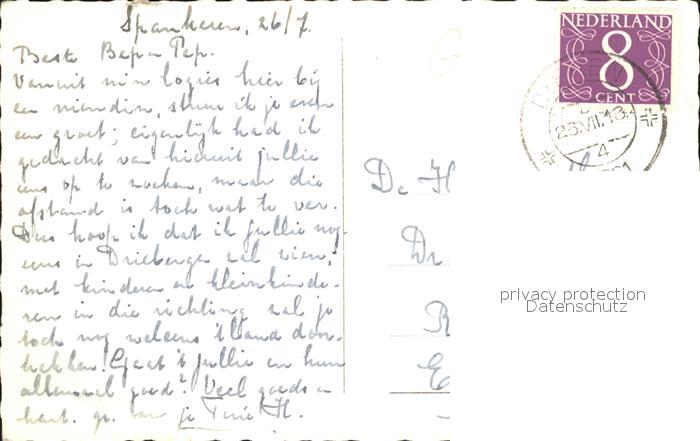 Spankeren, 26/7.
Beste Bep en Pep.
Vanuit mijn logies hier bij
een vriendin, stuur ik je even
een groet; eigenlijk had ik
gedacht van hieruit jullie
eens op te zoeken, maar die
afstand is toch wat te ver.
Dus hoop ik dat ik jullie nog
eens in Driebergen zal zien,
met kinderen en kleinkinde-
ren in die richting zal je
toch nog weleens 't land door-
trekken! Gaat 't jullie en hun
allemaal goed? Veel goeds en
hart. gr. van je H.
NEDERLAND
8
CENT
De H
Dr
R
E
privacy protection
Datenschutz